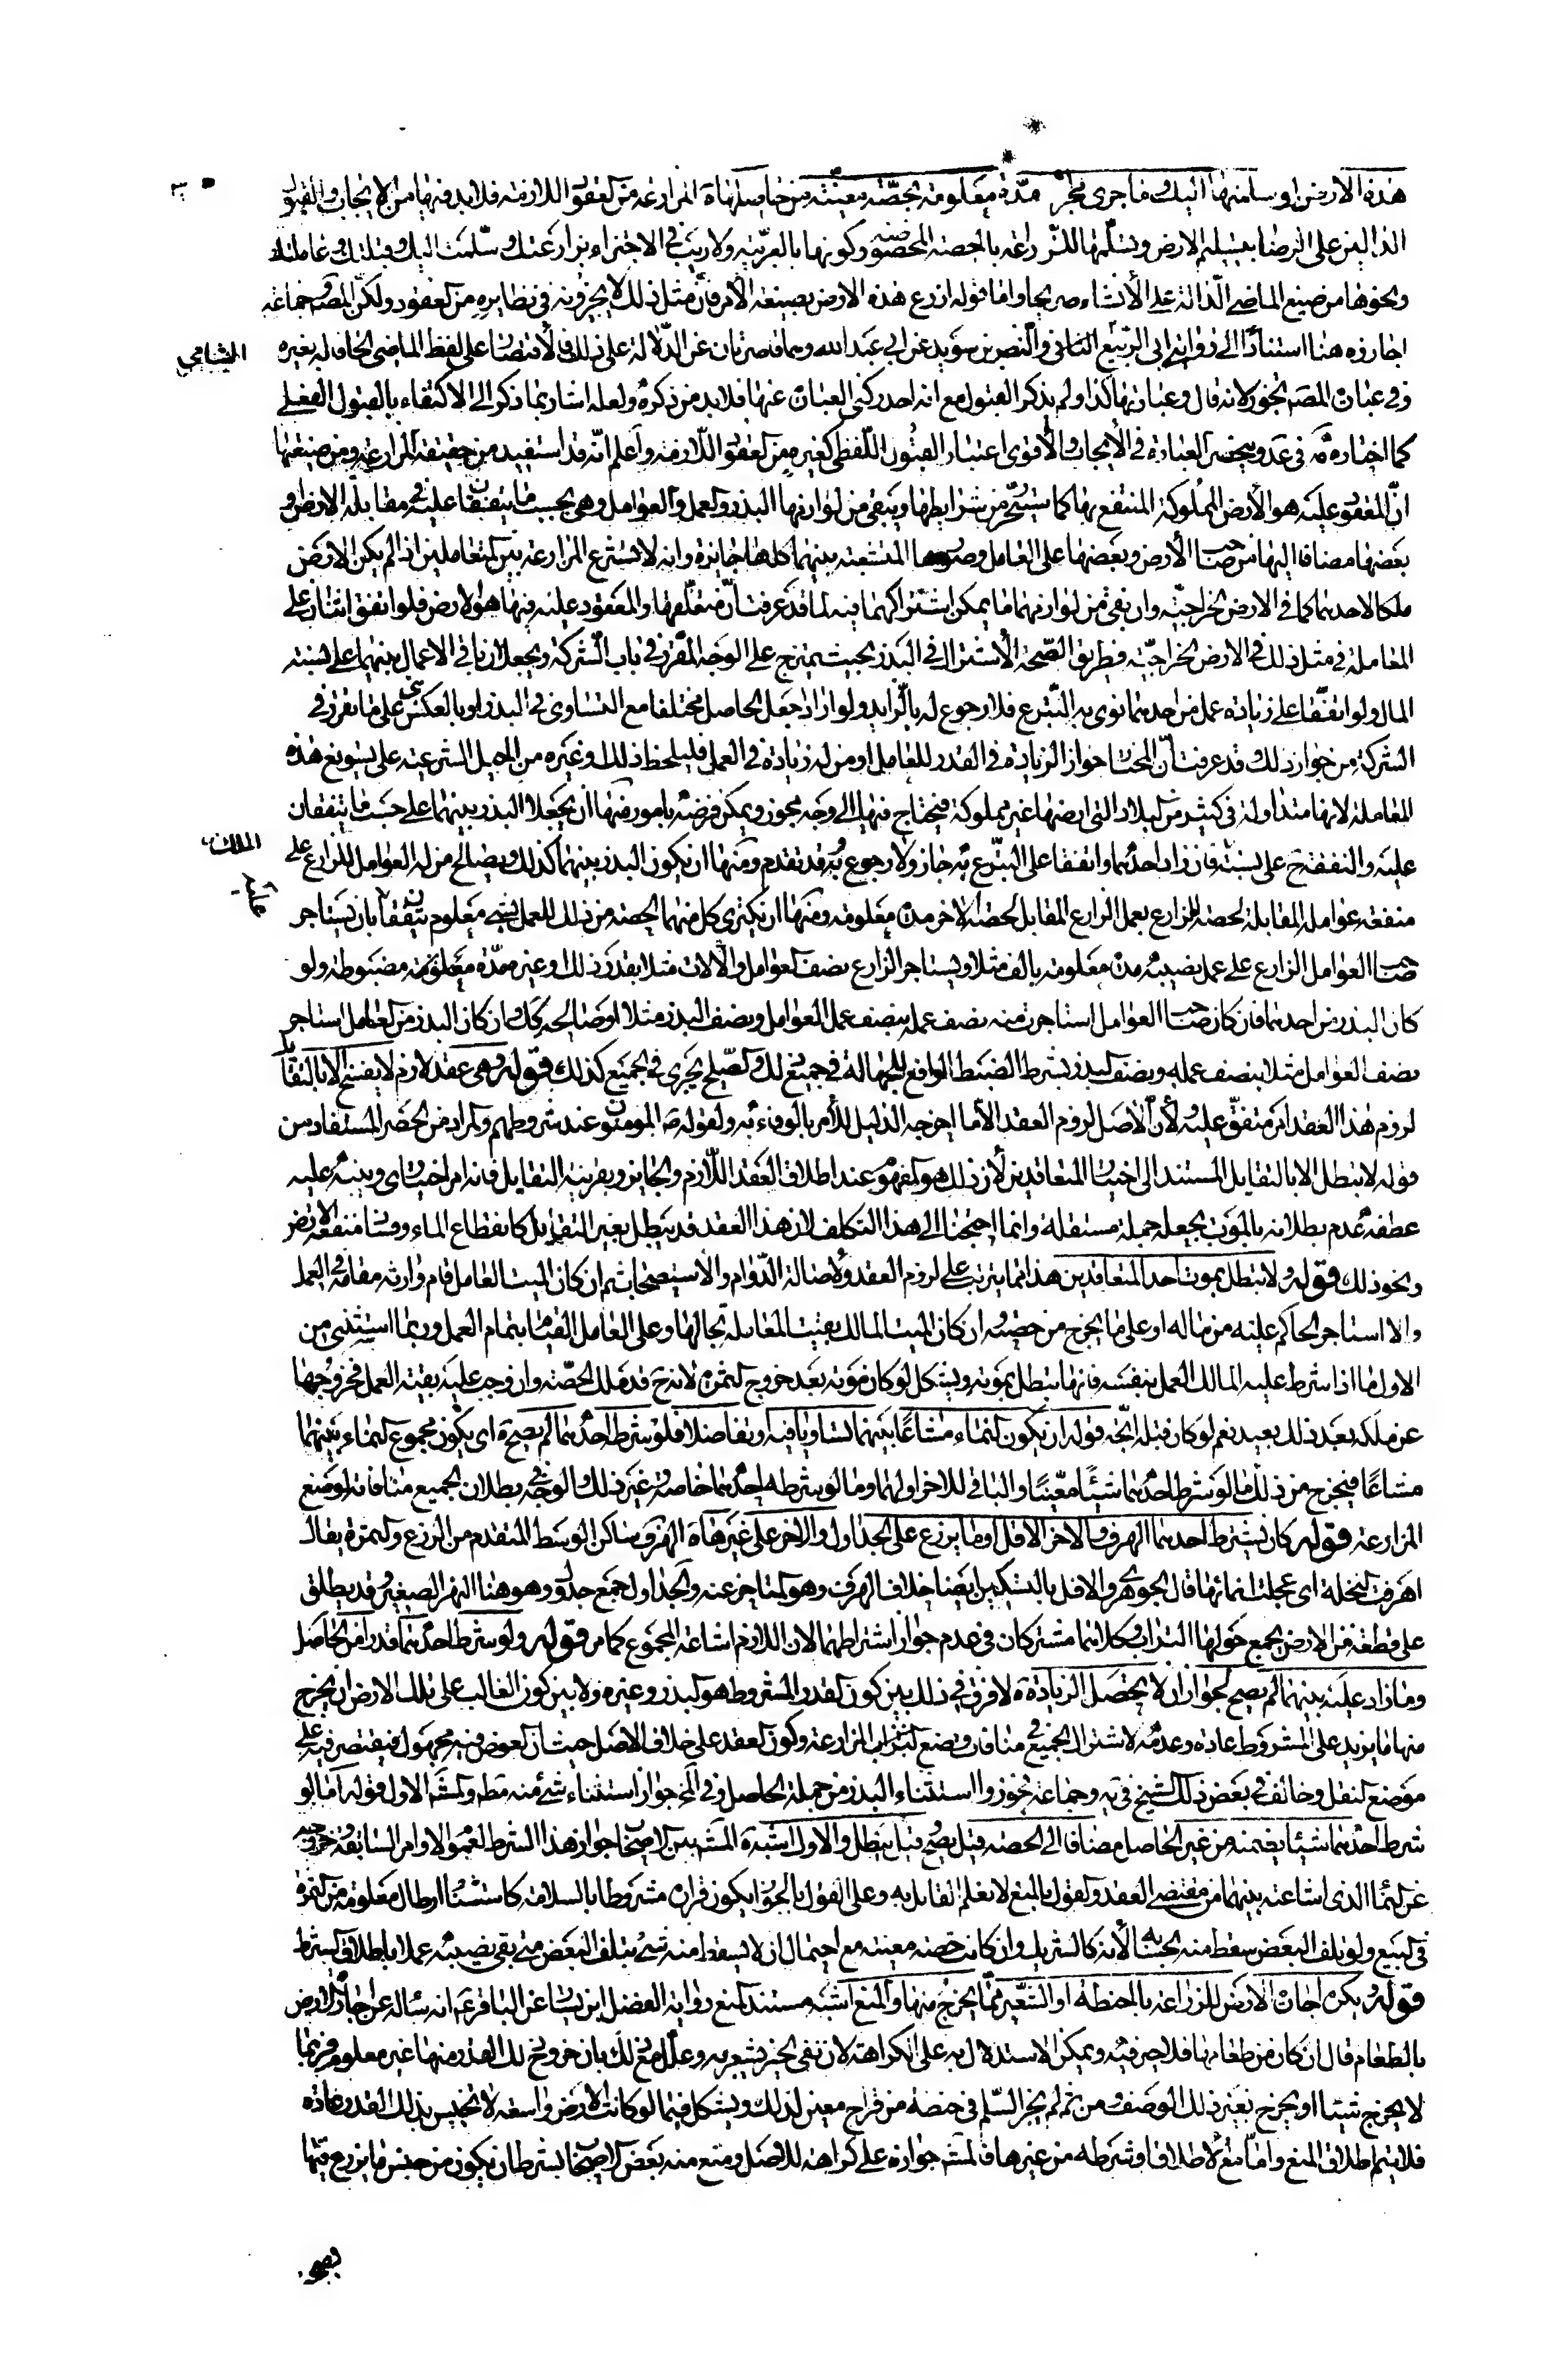 هذه الارض او سلمتها اليك وما جرى مجراه مدة معلومة بحصة معينة من حاصلها ة المزارعة من العقود اللازمة فلابد فيها من الايجاب والقبول
الدالين على الرضا بتسليم الارض وتسلمها للزراعة بالحصة المخصوصة وكونها بالعربية ولا ريب في الاجتزاء بزارعتك وسلمت اليك وقبلتك وعاملتك
ونحوها من صيغ الماضي الدالة على الانشاء صريحا واما قوله ازرع هذه الارض بصيغة الامر فان مثل ذلك لا يجيزونه في نظايره من العقود ولكن المص وجماعة
اجازوه هنا استنادا الى رواية ابي الربيع الشامي والنضر بن سويد عن ابي عبد الله وهما قاصرتان عن الدلالة على ذلك فالاقتصار على لفظ الماضي الحاقا له بغيره
وفي عبارة المص تجوز لانه قال وعبارتها كذا ولم يذكر القبول مع انه احد ركني العبارة عنها فلابد من ذكره ولعله اشار بما ذكر الى الاكتفاء بالقبول الفعلي
كما اختاره في عد ويحصر العبادة في الايجاب والاقوى اعتبار القبول اللفظي كغيره من العقود اللازمة واعلم انه قد استفيد من حقيقة المزارعة ومن صيغتها
ان المعقود عليه هو الارض المملوكة المنتفع بها كما سيتحرر من شرايطها ويبقى من لوازمها البذر والعمل والعوامل وهي بحسب ما يتفقان عليه في مقابلة الارض او
بعضها مضافا اليها من صاحب الارض وبعضها على العامل وصورها المتشعبة بينهما كلها جايزة وانه لا تشرع المزارعة بين المتعاملين اذا لم يكن الارض
ملكا لاحدهما كما في الارض الخراجية وان بقي من لوازمهما ما يمكن اشتراكهما فيه لما قد عرفت ان متعلقها والمعقود عليه فيها هو الارض فلو اتفق اثنان على
المعاملة في مثل ذلك في الارض الخراجية فطريق الصحة الاشتراك في البذر بحيث يمتزج على الوجه المقرر في باب الشركة ويجعلان باقي الاعمال بينهما على نسبة
المال ولو اتفقا على زيادة عمل من احدهما نوى به التبرع فلا رجوع له بالزايد ولو ارادا جعل الحاصل مختلفا مع التساوي في البذر او بالعكس بني على ما تقرر في
الشركة من جواز ذلك وقد عرفت ان المختار جواز الزيادة في القدر للعامل او من له زيادة في العمل فليلحظ ذلك وغيره من الحيل الشرعية على تسويغ هذه
المعاملة لانها متداولة في كثير من البلاد التي ارضها غير مملوكة فيحتاج فيها الى وجه مجوز ويمكن فرضه بامور منها ان يجعلا البذر بينهما على حسب ما يتفقان
عليه والنفقة على نسبته فان زاد احدهما واتفقا على التبرع به جاز ولا رجوع به وقد تقدم ومنها ان يكون البذر بينهما كذلك ويصالح من له العوامل المزارع على
منفعة عوامله المقابلة لحصة المزارع بعمل الزارع المقابل لحصة الاخر مدة معلومة ومنها ان يكتري كل منهما الحصة من ذلك للعمل بشيء معلوم يتفقان بان يستاجر
صاحب العوامل الزارع على عمل نصيبه مدة معلومة بالف مثلا ويستاجر الزارع نصف العوامل والآلات مثلا بقدر ذلك وغيره مدة معلومة مضبوطة ولو
كان البذر من احدهما فان كان صاحب العوامل استاجره منه نصف عمله بنصف عمل العوامل ونصف البذر مثلا او صالحه كك وان كان البذر من العامل استاجر
نصف العوامل مثلا بنصف عمله ونصف البذر بشرط الضبط الرافع للجهالة في جميع ذلك والصلح يجري في الجميع كذلك قوله وهي عقد لازم لا ينفسخ الا بالتقايل
لزوم هذا العقد امر متفق عليه لان الاصل لزوم العقد الا ما اخرجه الدليل للامر بالوفاء به ولقوله ص المومنون عند شروطهم والمراد من الحصر المستفاد من
قوله لا يبطل الا بالتقايل المستند الى اختيار المتعاقدين لان ذلك هو المفهوم عند اطلاق العقد اللازم والجايز وبقرينة التقايل فانه امر اختياري وينبه عليه
عطفه عدم بطلانه بالموت بجعله جملة مستقلة وانما احتجنا الى هذا التكلف لان هذا العقد قد يبطل بغير التقايل كانقطاع الماء وفساد منفعة الارض
ونحو ذلك قوله ولا تبطل بموت احد المتعاقدين هذا مما يترتب على لزوم العقد ولاصالة الدوام والاستصحاب ثم ان كان الميت العامل قام وارثه مقامه في العمل
والا استاجر الحاكم عليه من ماله او على ما يخرج من حصته وان كان الميت المالك بقيت المعاملة بحالها وعلى العامل القيام بتمام العمل وربما استثني من
الاول ما اذا شرط عليه المالك العمل بنفسه فانها تبطل بموته ويشكل لو كان موته بعد خروج الثمرة لانه ح قد ملك الحصة وان وجب عليه بقية العمل فخروجها
عن ملكه بعد ذلك بعيد نعم لو كان قبله اتجه قوله ان يكون النماء مشاعا بينهما تساويا فيه او تفاضلا فلو شرطه احدهما لم يصح ة اي يكون مجموع النماء بينهما
مشاعا فيخرج من ذلك ما لو شرط احدهما شيئا معينا والباقي للاخر او لهما وما لو شرطه احدهما خاصة وغير ذلك والوجه في بطلان الجميع منافاته لوضع
المزارعة قوله كان يشترط احدهما الهرف والاخر الافل او ما يزرع على الجداول والاخر على غيرها ة الهرف ساكن الوسط المتقدم من الزرع والثمرة يقال
اهرفت النخلة اي عجلت انمائها قال الجوهري والافل بالتسكين ايضا خلاف الهرف وهو المتاخر عنه والجداول جمع جدول وهو هنا النهر الصغير وقد يطلق
على قطعة من الارض يجمع حولها التراب وكلاهما مشتركان في عدم جواز اشتراطهما لان اللازم اشاعة المجموع كما مر قوله ولو شرط احدهما قدرا من الحاصل
وما زاد عليه بينهما لم يصح لجواز ان لا تحصل الزيادة ة لا فرق في ذلك بين كون القدر المشروط هو البذر وغيره ولا بين كون الغالب على تلك الارض ان يخرج
منها ما يزيد على المشروط عادة وعدمه لاشتراك الجميع في منافاة وضع المزارعة وكون العقد على خلاف الاصل حيث ان العوض فيه مجهول فيقتصر فيه على
موضع النقل وخالف في بعض ذلك الشيخ في يه وجماعة فجوزوا استثناء البذر من جملة الحاصل وفي المخ جواز استثناء شيء منه مطم والمشهور الاول قوله اما لو
شرط احدهما شيئا يضمنه من غير الحاصل مضافا الى الحصة قيل يصح وقيل يبطل والاول اشبه ة المشهور بين الاصحاب جواز هذا الشرط لعموم الاوامر السابقة وخروجه
عن النماء الذي اشاعته بينهما من مقتضى العقد والقول بالمنع لا نعلم القايل به وعلى القول بالجواز يكون قراره مشروطا بالسلامة كاستثناء ارطال معلومة من الثمرة
في البيع ولو تلف البعض سقط منه بحسابه لانه كالشريك وان كانت حصته معينة مع احتمال ان لا يسقط منه شيء بتلف البعض متى بقي نصيبه عملا باطلاق الشرط
قوله يكره اجارة الارض للزراعة بالحنطة او الشعير مما يخرج منها والمنع اشبه مستند المنع رواية الفضل ابن يسار عن الباقر ع انه ساله عن اجارة الارض
بالطعام قال ان كان من طعامها فلا خير فيه ويمكن الاستدلال به على الكراهة لان نفي الخير يشعر به وعلل مع ذلك بان خروج ذلك القدر منها غير معلوم فربما
لا يخرج شيئا او يخرج بغير ذلك الوصف ومن ثم لم يجز السلم في حنطة من قراح معين لذلك ويشكل فيما لو كانت الارض واسعة لا تخيس بذلك القدر عادة
فلا يتم اطلاق المنع واما مع الاطلاق او شرطه من غيرها فالمشهور جوازه على كراهة للاصل ومنع منه بعض الاصحاب بشرط ان يكون من جنس ما يزرع فيها